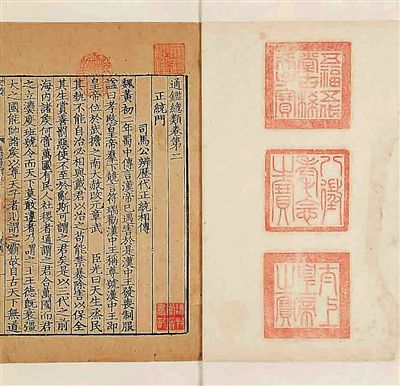 通鑑總類卷第二
正統門
司馬公辨歷代正統相傳
魏黃初二年蜀中傳言漢帝已遇害於是漢中王發喪制服
諡曰孝愍皇帝羣下競言符瑞勸漢中王稱尊號漢中王即
皇帝位於武擔之南大赦改元章武 臣光曰天生烝民
其勢不能自治必相與戴君以治之苟能禁暴除害以保全
其生賞善罰惡使不至於亂斯可謂之君矣是以三代之前
海内諸侯何啻萬國有民人社稷者通謂之君合萬國而君
之立灋度班號令而天下莫敢違者乃謂之王王德既衰彊
大之國能帥諸侯以尊天子者則謂之霸故自古天下無道
五福五代堂古稀天子寶
八徵耄念之寶
太上皇帝之寶